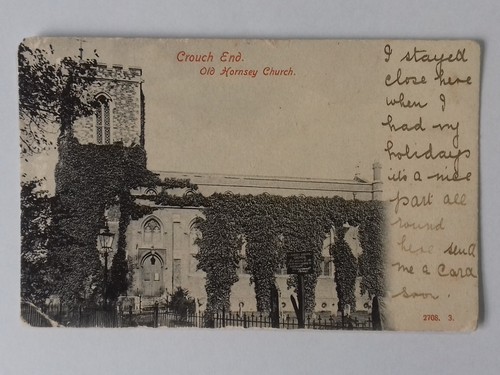 Crouch End.
Old Hornsey Church.
I stayed
close here
when I
had my
holidays
its a nice
part all
round
here send
me a Card
soon.
2708. 3.